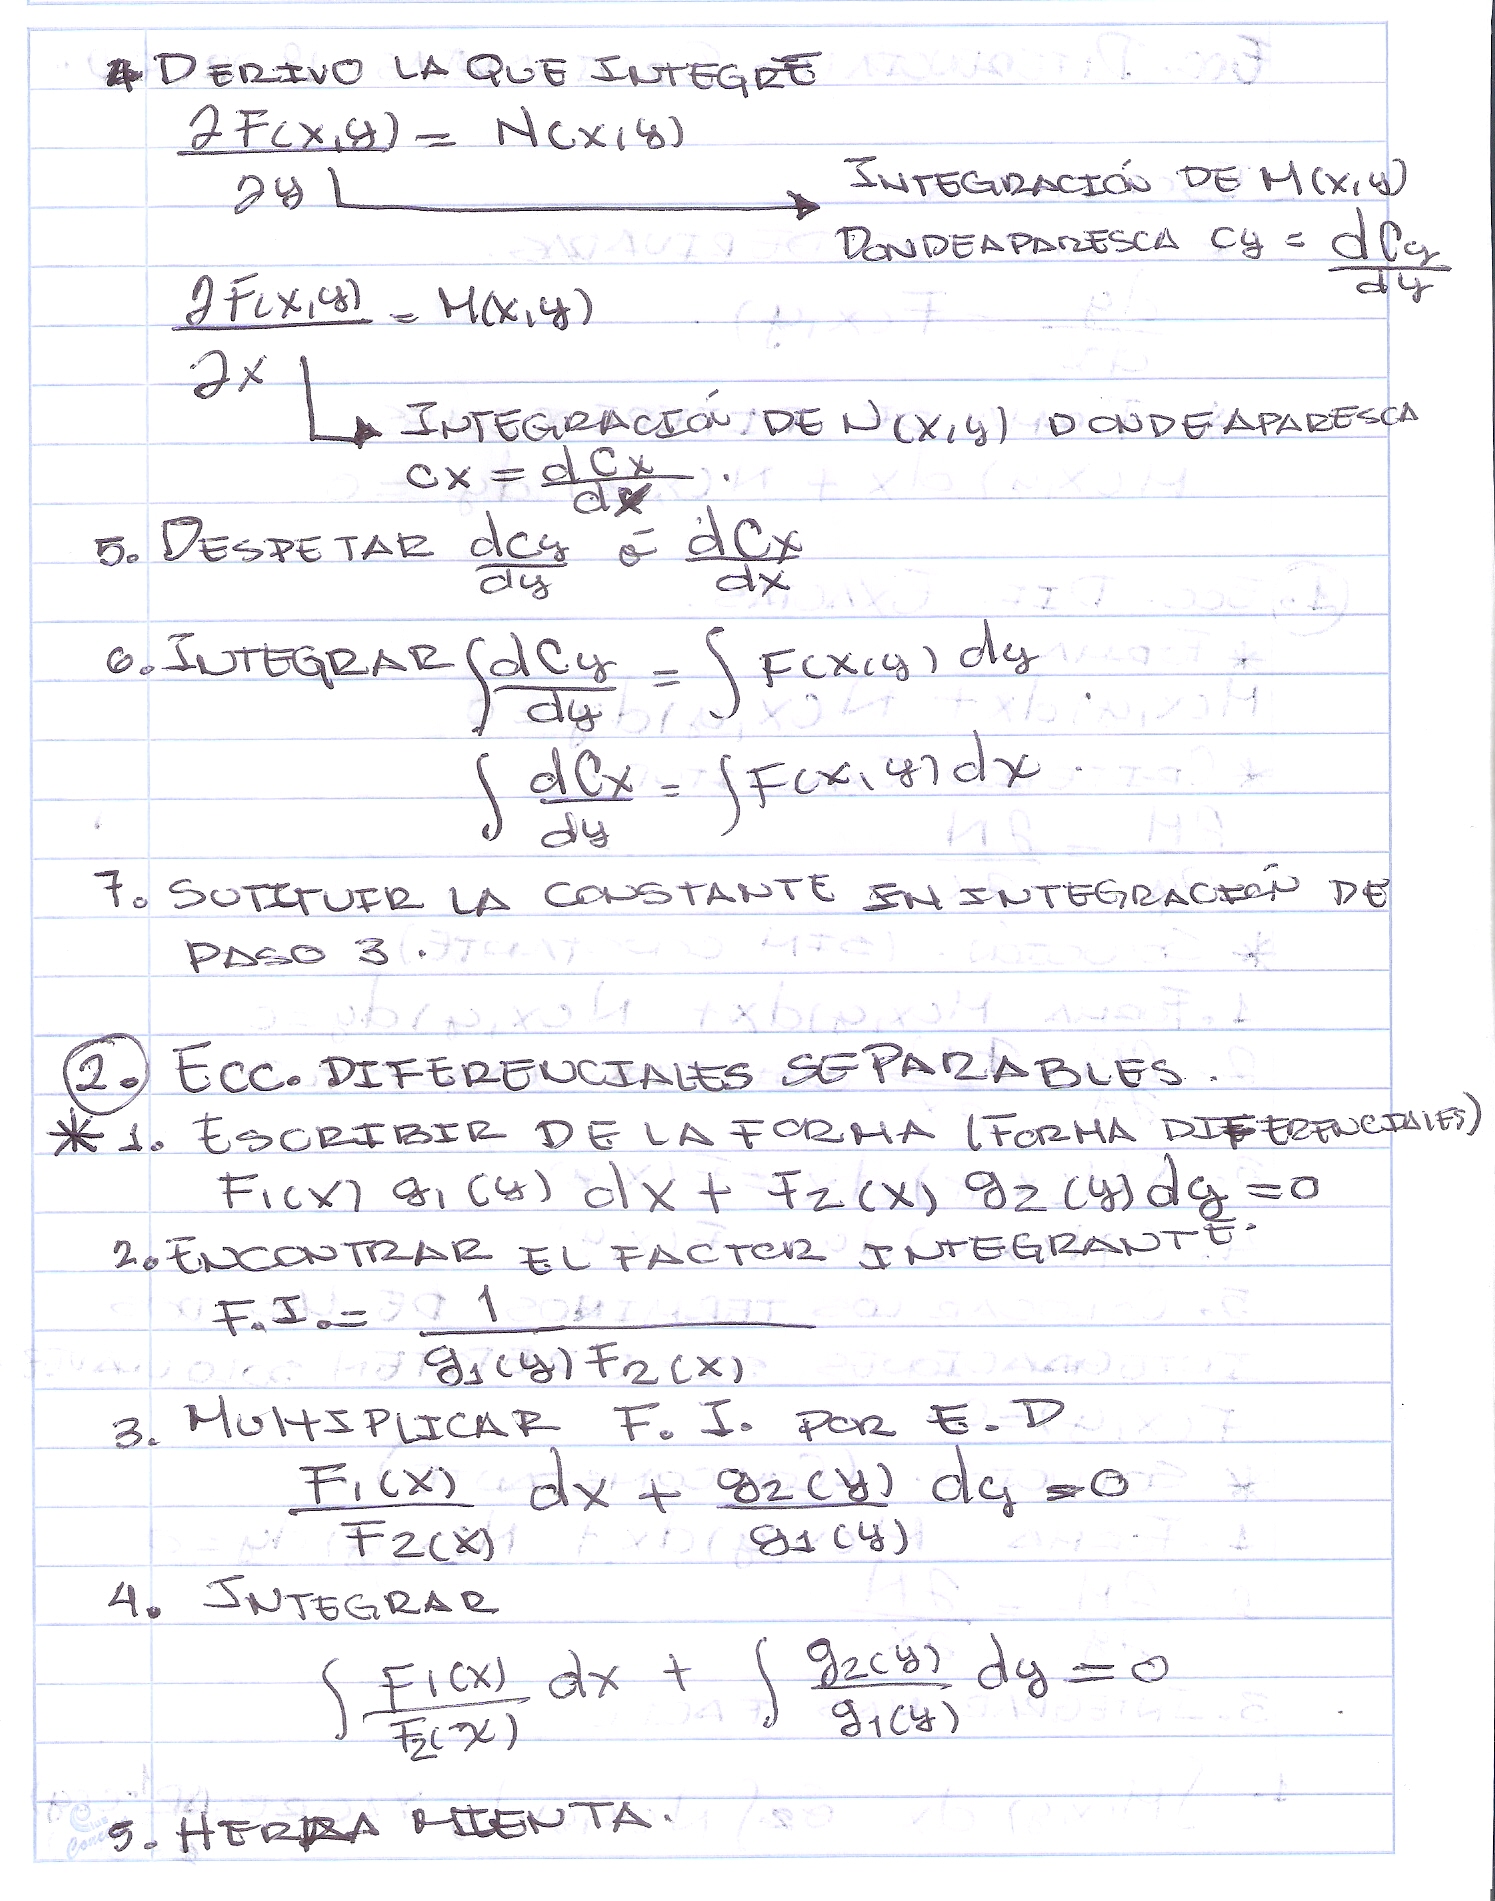 4 DERIVO LA QUE INTEGRÉ
∂F(x,y) = N(x,y)
∂y
INTEGRACIÓN DE M(x,y)
DONDE APARESCA Cy = dCy
dy
∂F(x,y) = M(x,y)
∂x
INTEGRACIÓN DE N(x,y) DONDE APARESCA
Cx = dCx .
dx
5. DESPETAR dCy ó dCx
dy dx
6. INTEGRAR ∫ dCy = ∫ F(x,y) dy
dy
∫ dCx = ∫ F(x,y) dx
dy
7. SUTITUIR LA CONSTANTE EN INTEGRACIÓN DE
PASO 3.
2. ECC. DIFERENCIALES SEPARABLES.
* 1. ESCRIBIR DE LA FORMA (FORMA DIFERENCIALES)
F1(x) g1(y) dx + F2(x) g2(y) dy = 0
2. ENCONTRAR EL FACTOR INTEGRANTE.
F.I. = 1
g1(y) F2(x)
3. MULTIPLICAR F. I. POR E. D
F1(x) dx + g2(y) dy = 0
F2(x) g1(y)
4. INTEGRAR
∫ F1(x) dx + ∫ g2(y) dy = 0
F2(x) g1(y)
5. HERRAMIENTA.